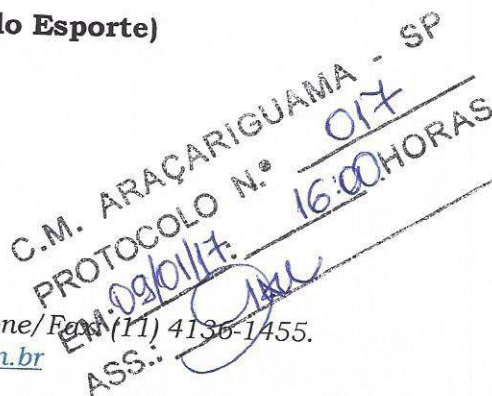 lo Esporte)
C.M. ARAÇARIGUAMA - SP
PROTOCOLO N.º 017
EM: 09/01/17. 16:00 HORAS
ASS.:
ne/Fax (11) 4136-1455.
n.br